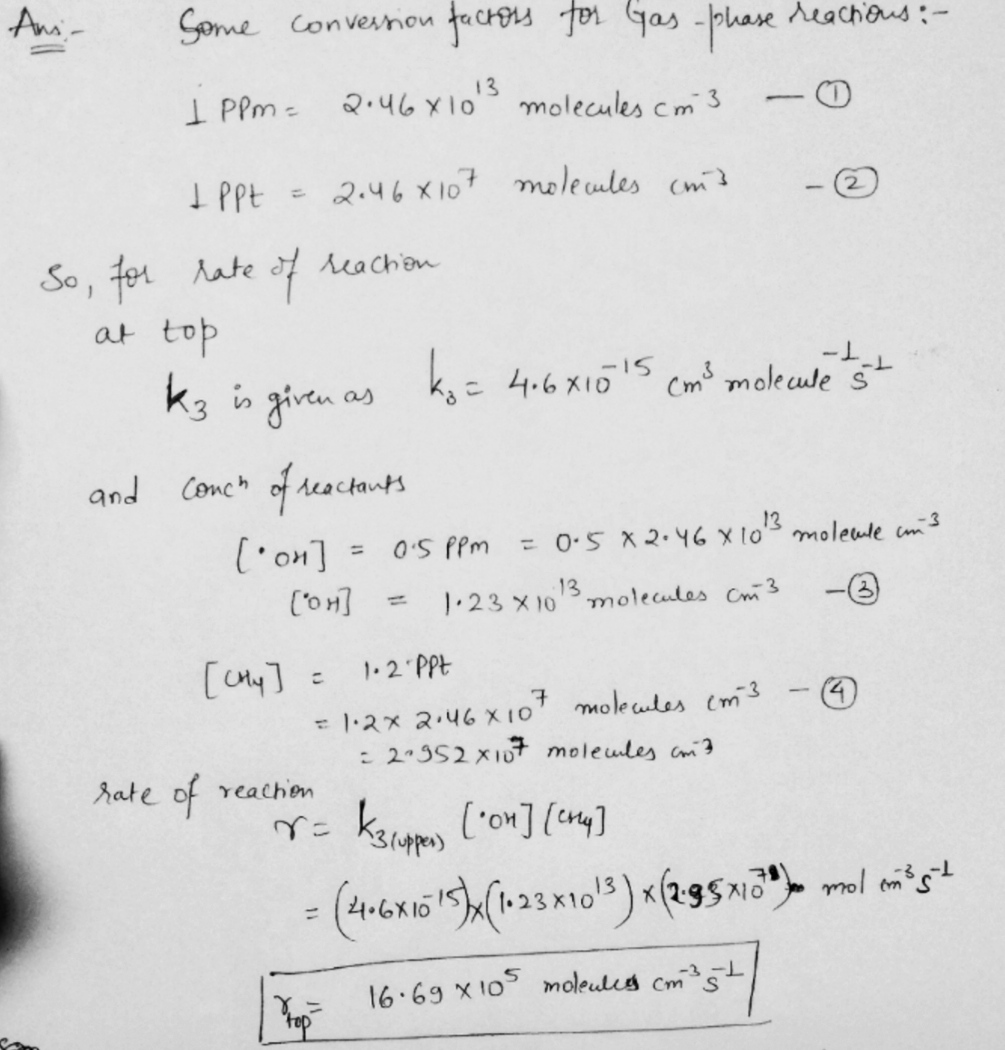 Ans:- Some conversion factors for Gas-phase reactions:-
1 PPm = 2.46 x 10¹³ molecules cm⁻³ — ①
1 PPt = 2.46 x 10⁷ molecules cm⁻³ - ②
So, for rate of reaction
at top
k₃ is given as k₃ = 4.6 x 10⁻¹⁵ cm³ molecule⁻¹ s⁻¹
and concⁿ of reactants
[•OH] = 0.5 PPm = 0.5 x 2.46 x 10¹³ molecule cm⁻³
[•OH] = 1.23 x 10¹³ molecules cm⁻³ -③
[CH4] = 1.2 PPt
= 1.2 x 2.46 x 10⁷ molecules cm⁻³ - ④
= 2.952 x 10⁷ molecules cm⁻³
rate of reaction
r = k₃(upper) [•OH] [CH4]
= (4.6x10⁻¹⁵)x(1.23x10¹³)x(2.95x10⁷) mol cm⁻³ s⁻¹
r top = 16.69 x 10⁵ molecules cm⁻³ s⁻¹